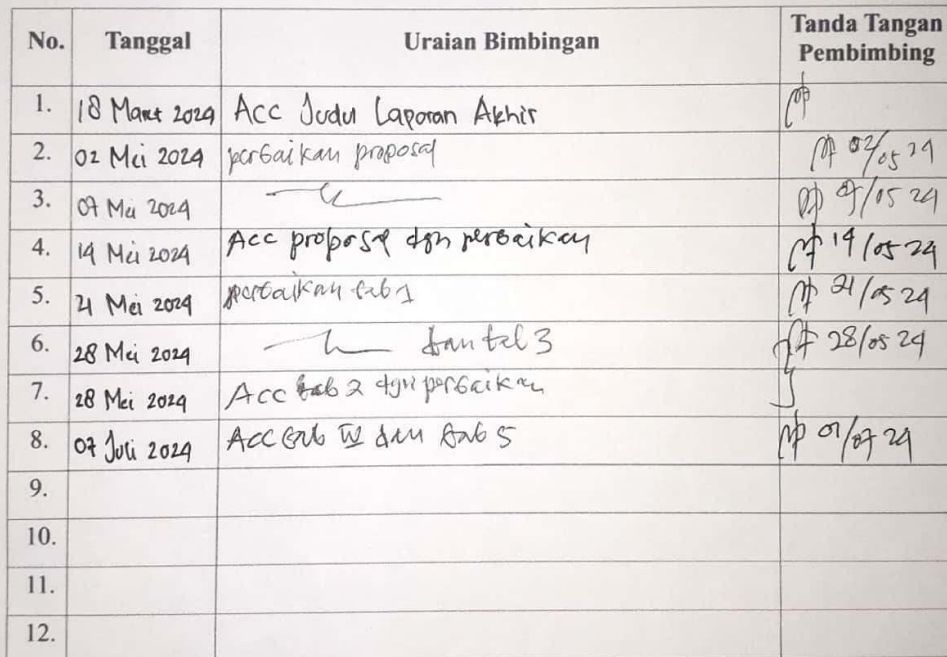 No. Tanggal Uraian Bimbingan Tanda Tangan Pembimbing
1. 18 Maret 2024 Acc Judul Laporan Akhir
2. 02 Mei 2024 perbaikan proposal 02/05 24
3. 07 Mei 2024 07/05 24
4. 14 Mei 2024 Acc proposal dgn perbaikan 14/05 24
5. 21 Mei 2024 perbaikan bab 1 21/05 24
6. 28 Mei 2024 dan bab 3 28/05 24
7. 28 Mei 2024 Acc bab 2 dgn perbaikan
8. 07 Juli 2024 Acc bab IV dan bab 5 07/07 24
9.
10.
11.
12.